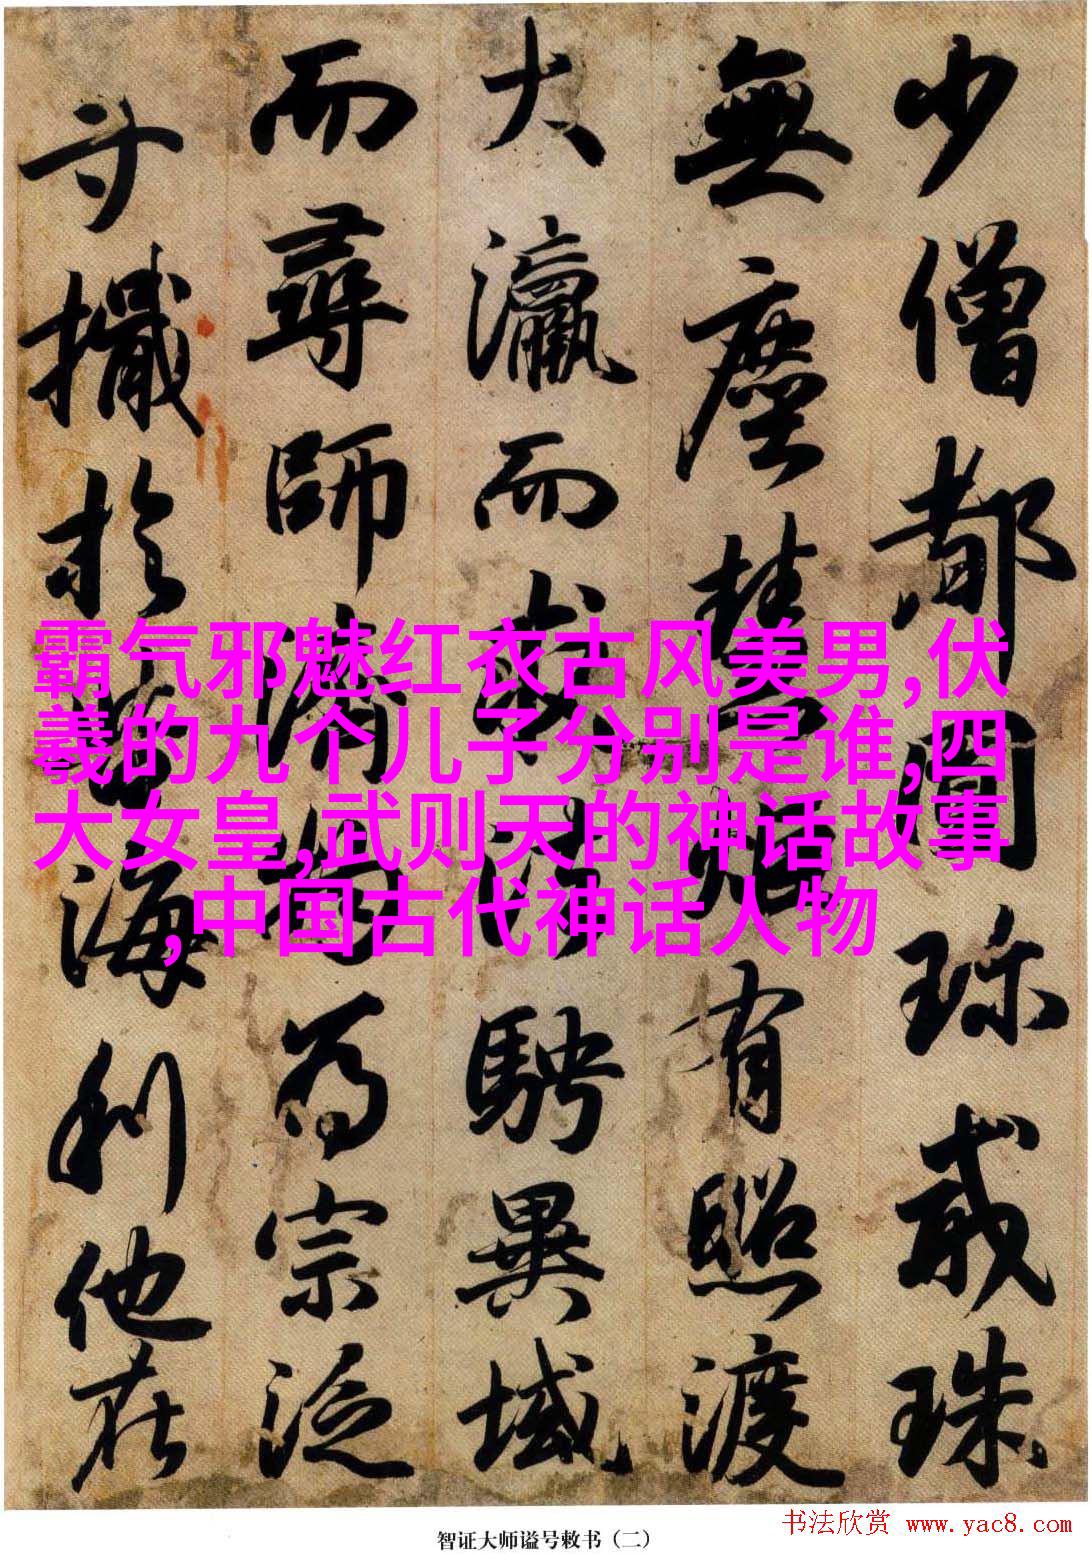 少僧都圓珎戒珠
無塵慧炬有照渡
大瀛而求法騁異域
而尋師濟物為宗泛
寸檝於海利他在
霸气邪魅红衣古风美男,伏
羲的九个儿子分别是谁,四
大女皇,武则天的神话故事
,中国古代神话人物
智证大师谥号敕书（二）
书法欣赏 www.yac8.com